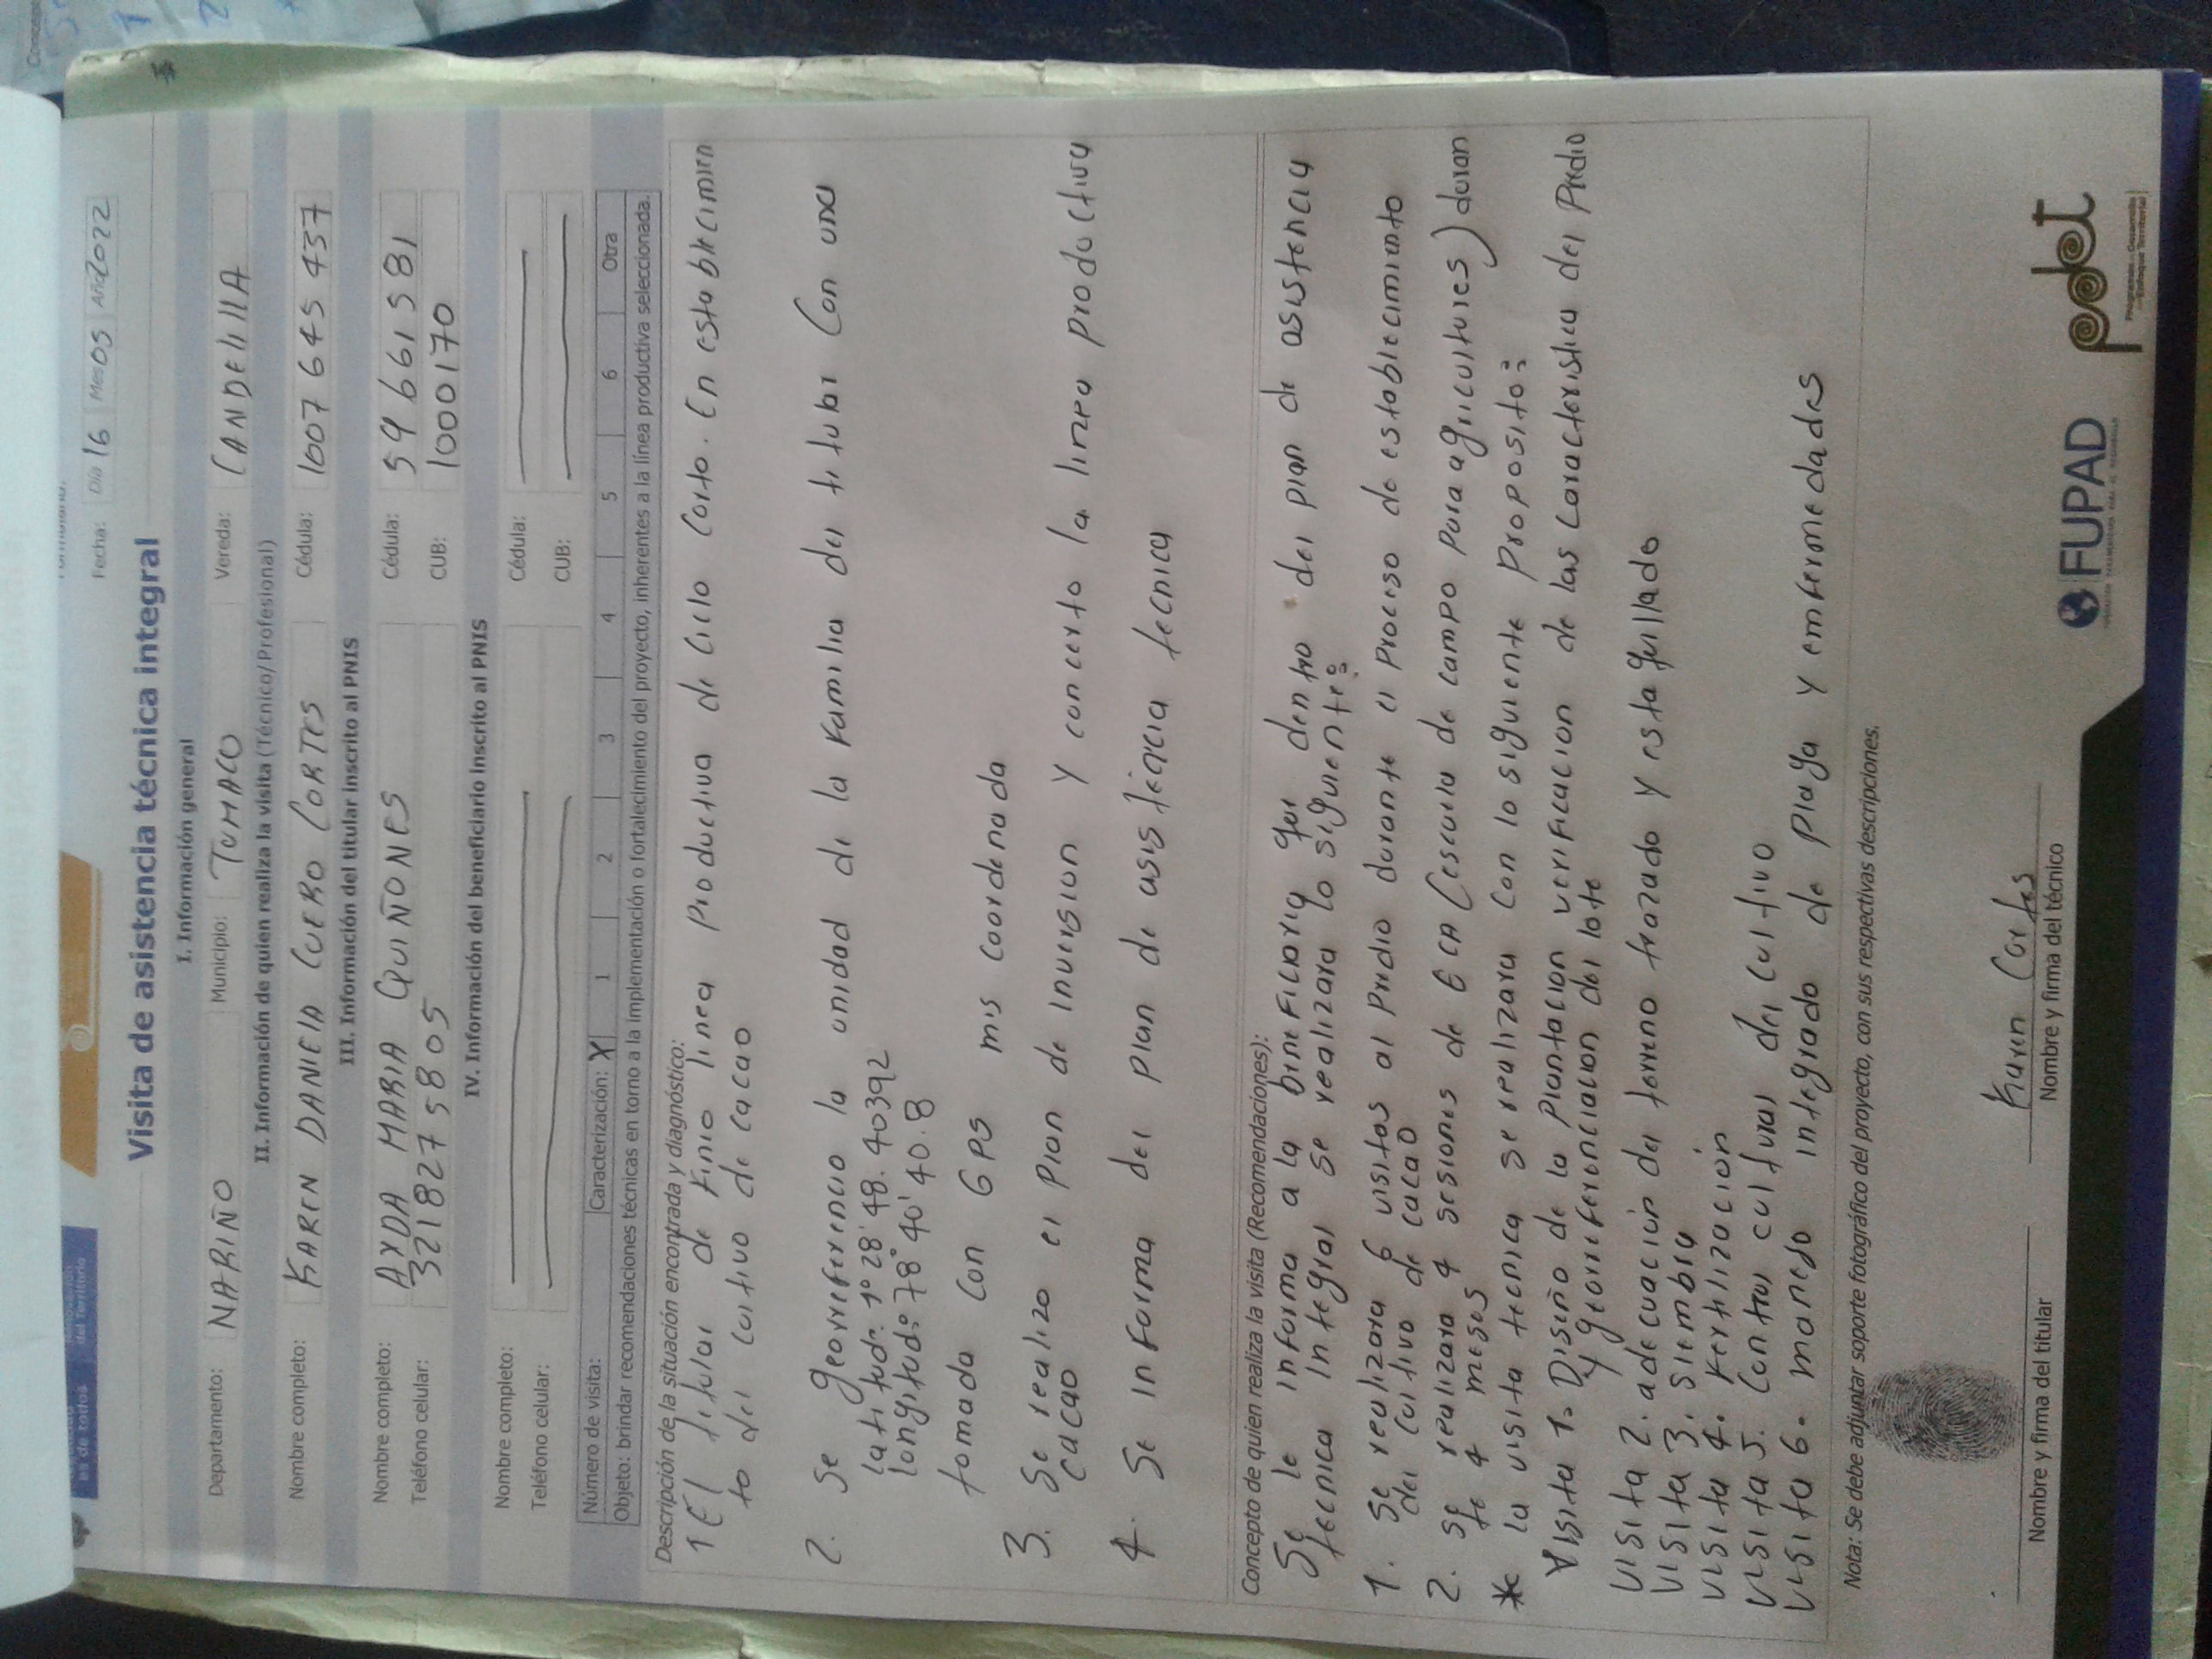 es de todos
del Territorio
Fecha: Día 16 Mes 05 Año 2022
Visita de asistencia técnica integral
I. Información general
Departamento: NARIÑO Municipio: TUMACO Vereda: CANDELILLA
II. Información de quien realiza la visita (Técnico/Profesional)
Nombre completo: KAREN DANIELA CUERO CORTES Cédula: 1007645437
III. Información del titular inscrito al PNIS
Nombre completo: AYDA MARIA QUIÑONES Cédula: 59661581
Teléfono celular: 3218275805 CUB: 1000170
IV. Información del beneficiario inscrito al PNIS
Nombre completo: Cédula:
Teléfono celular: CUB:
Número de visita: Caracterización: X 1 2 3 4 5 6 Otra
Objeto: brindar recomendaciones técnicas en torno a la implementación o fortalecimiento del proyecto, inherentes a la línea productiva seleccionada.
Descripción de la situación encontrada y diagnóstico:
1 El titular de Finio linea productiva de ciclo corto. En establecimien
to del cultivo de cacao
2. Se georreferencio la unidad de la Familia del titular Con una
latitud: 1° 28' 48. 40392
longitud: 78° 40' 40.8
tomada Con GPS mis coordenada
3. Se realizo el plan de inversion y concerto la linea productiva
cacao
4. Se informa del plan de asistencia tecnica
Concepto de quien realiza la visita (Recomendaciones):
Se le informa a la beneficiaria que dentro del plan de asistencia
tecnica integral se realizara lo siguiente:
1. Se realizara 6 visitas al Predio durante el proceso de establecimiento
del cultivo de cacao
2. se realizara 4 sesiones de ECA (escuela de campo para agricultures) duran
te 4 meses
* la visita tecnica se realizara con lo siguiente proposito:
Visita 1. Diseño de la plantacion verificacion de las caracteristica del Predio
y georreferenciacion del lote
visita 2. adecuación del terreno trazado y estaquillado
visita 3. Siembra
visita 4. Fertilización
visita 5. Control cultural del cultivo
visita 6. manejo integrado de plaga y emfermedades
Nota: Se debe adjuntar soporte fotográfico del proyecto, con sus respectivas descripciones.
Karen Cortes
Nombre y firma del titular Nombre y firma del técnico
FUPAD
pdet
Programas de Desarrollo
con Enfoque Territorial